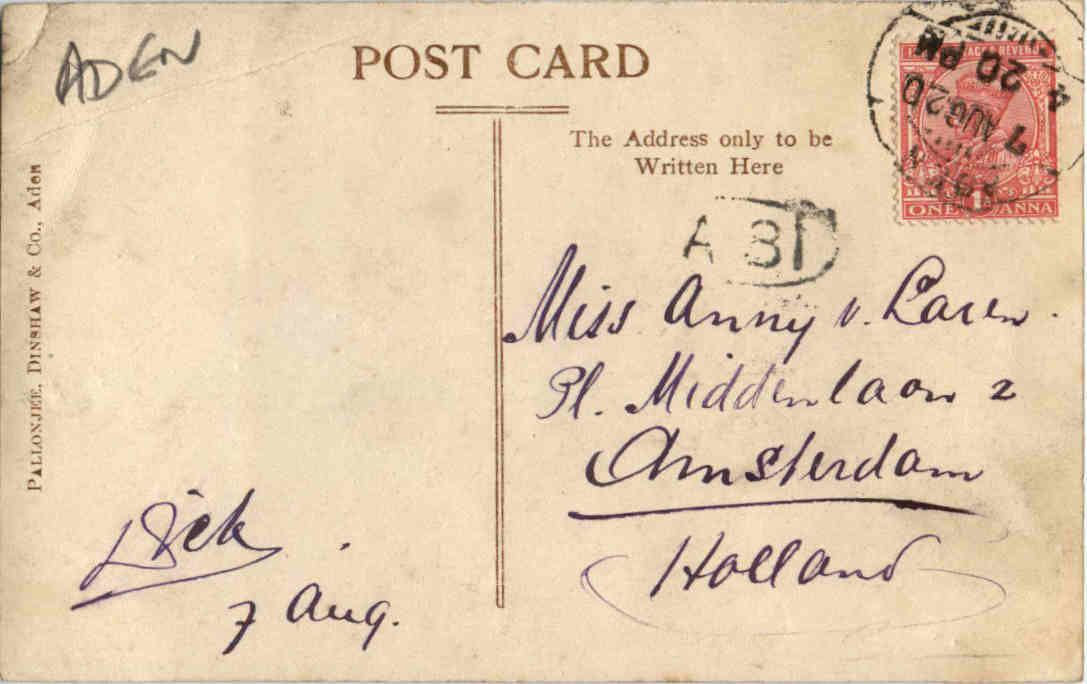 ADEN
POST CARD
The Address only to be
Written Here
ONE 1 ANNA
4 20 PM
7 AUG 20
A B
Miss Anny v. Laren.
Pl. Middenlaan 2
Amsterdam
Holland
Dick
7 Aug.
PALLONJEE, DINSHAW & Co., Aden